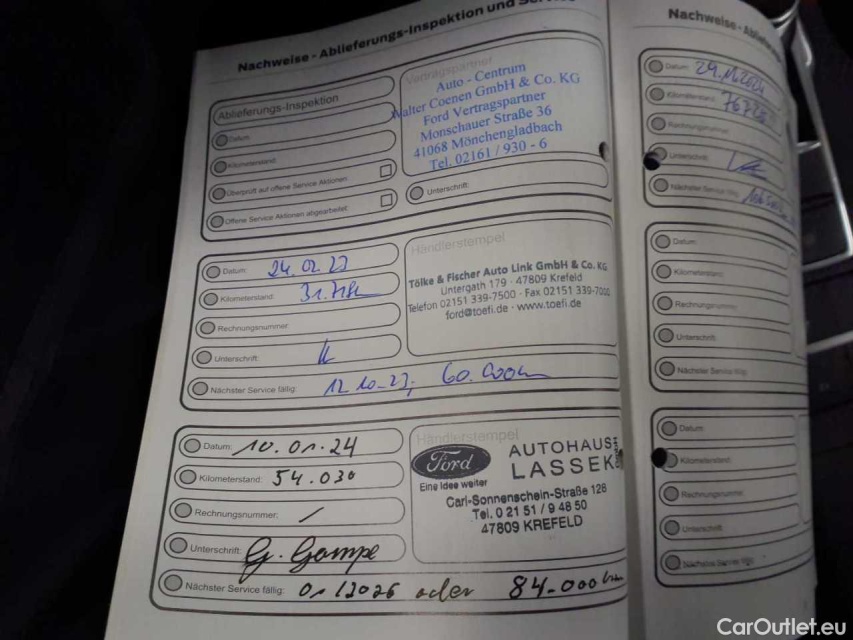 Nachweise - Ablieferungs-Inspektion und
Ablieferungs-Inspektion
Datum:
Kilometerstand:
Überprüft auf offene Service Aktionen:
Offene Service Aktionen abgearbeitet:
Vertragspartner
Auto - Centrum
Walter Coenen GmbH & Co. KG
Ford Vertragspartner
Monschauer Straße 36
41068 Mönchengladbach
Tel. 02161 / 930 - 6
Unterschrift:
Datum: 24.02.23
Kilometerstand:
Rechnungsnummer:
Unterschrift:
Nächster Service fällig: 12.10.23, 60.000km
Händlerstempel
Tölke & Fischer Auto Link GmbH & Co. KG
Untergath 179 · 47809 Krefeld
Telefon 02151 339-7500 · Fax 02151 339-7000
ford@toefi.de · www.toefi.de
Datum: 10.01.24
Kilometerstand: 54.030
Rechnungsnummer: /
Unterschrift: G. Gampe
Nächster Service fällig: 01/2026 oder 84.000km
Händlerstempel
Ford
Eine Idee weiter
AUTOHAUS
LASSEK
Carl-Sonnenschein-Straße 128
Tel. 0 21 51 / 9 48 50
47809 KREFELD
Nachweise - Ablieferungs
Datum:
Kilometerstand:
Rechnungsnummer:
Unterschrift:
Nächster Service fällig:
Datum:
Kilometerstand:
Rechnungsnummer:
Unterschrift:
Nächster Service fällig:
Datum:
Kilometerstand:
Rechnungsnummer:
Unterschrift:
Nächster Service fällig:
CarOutlet.eu